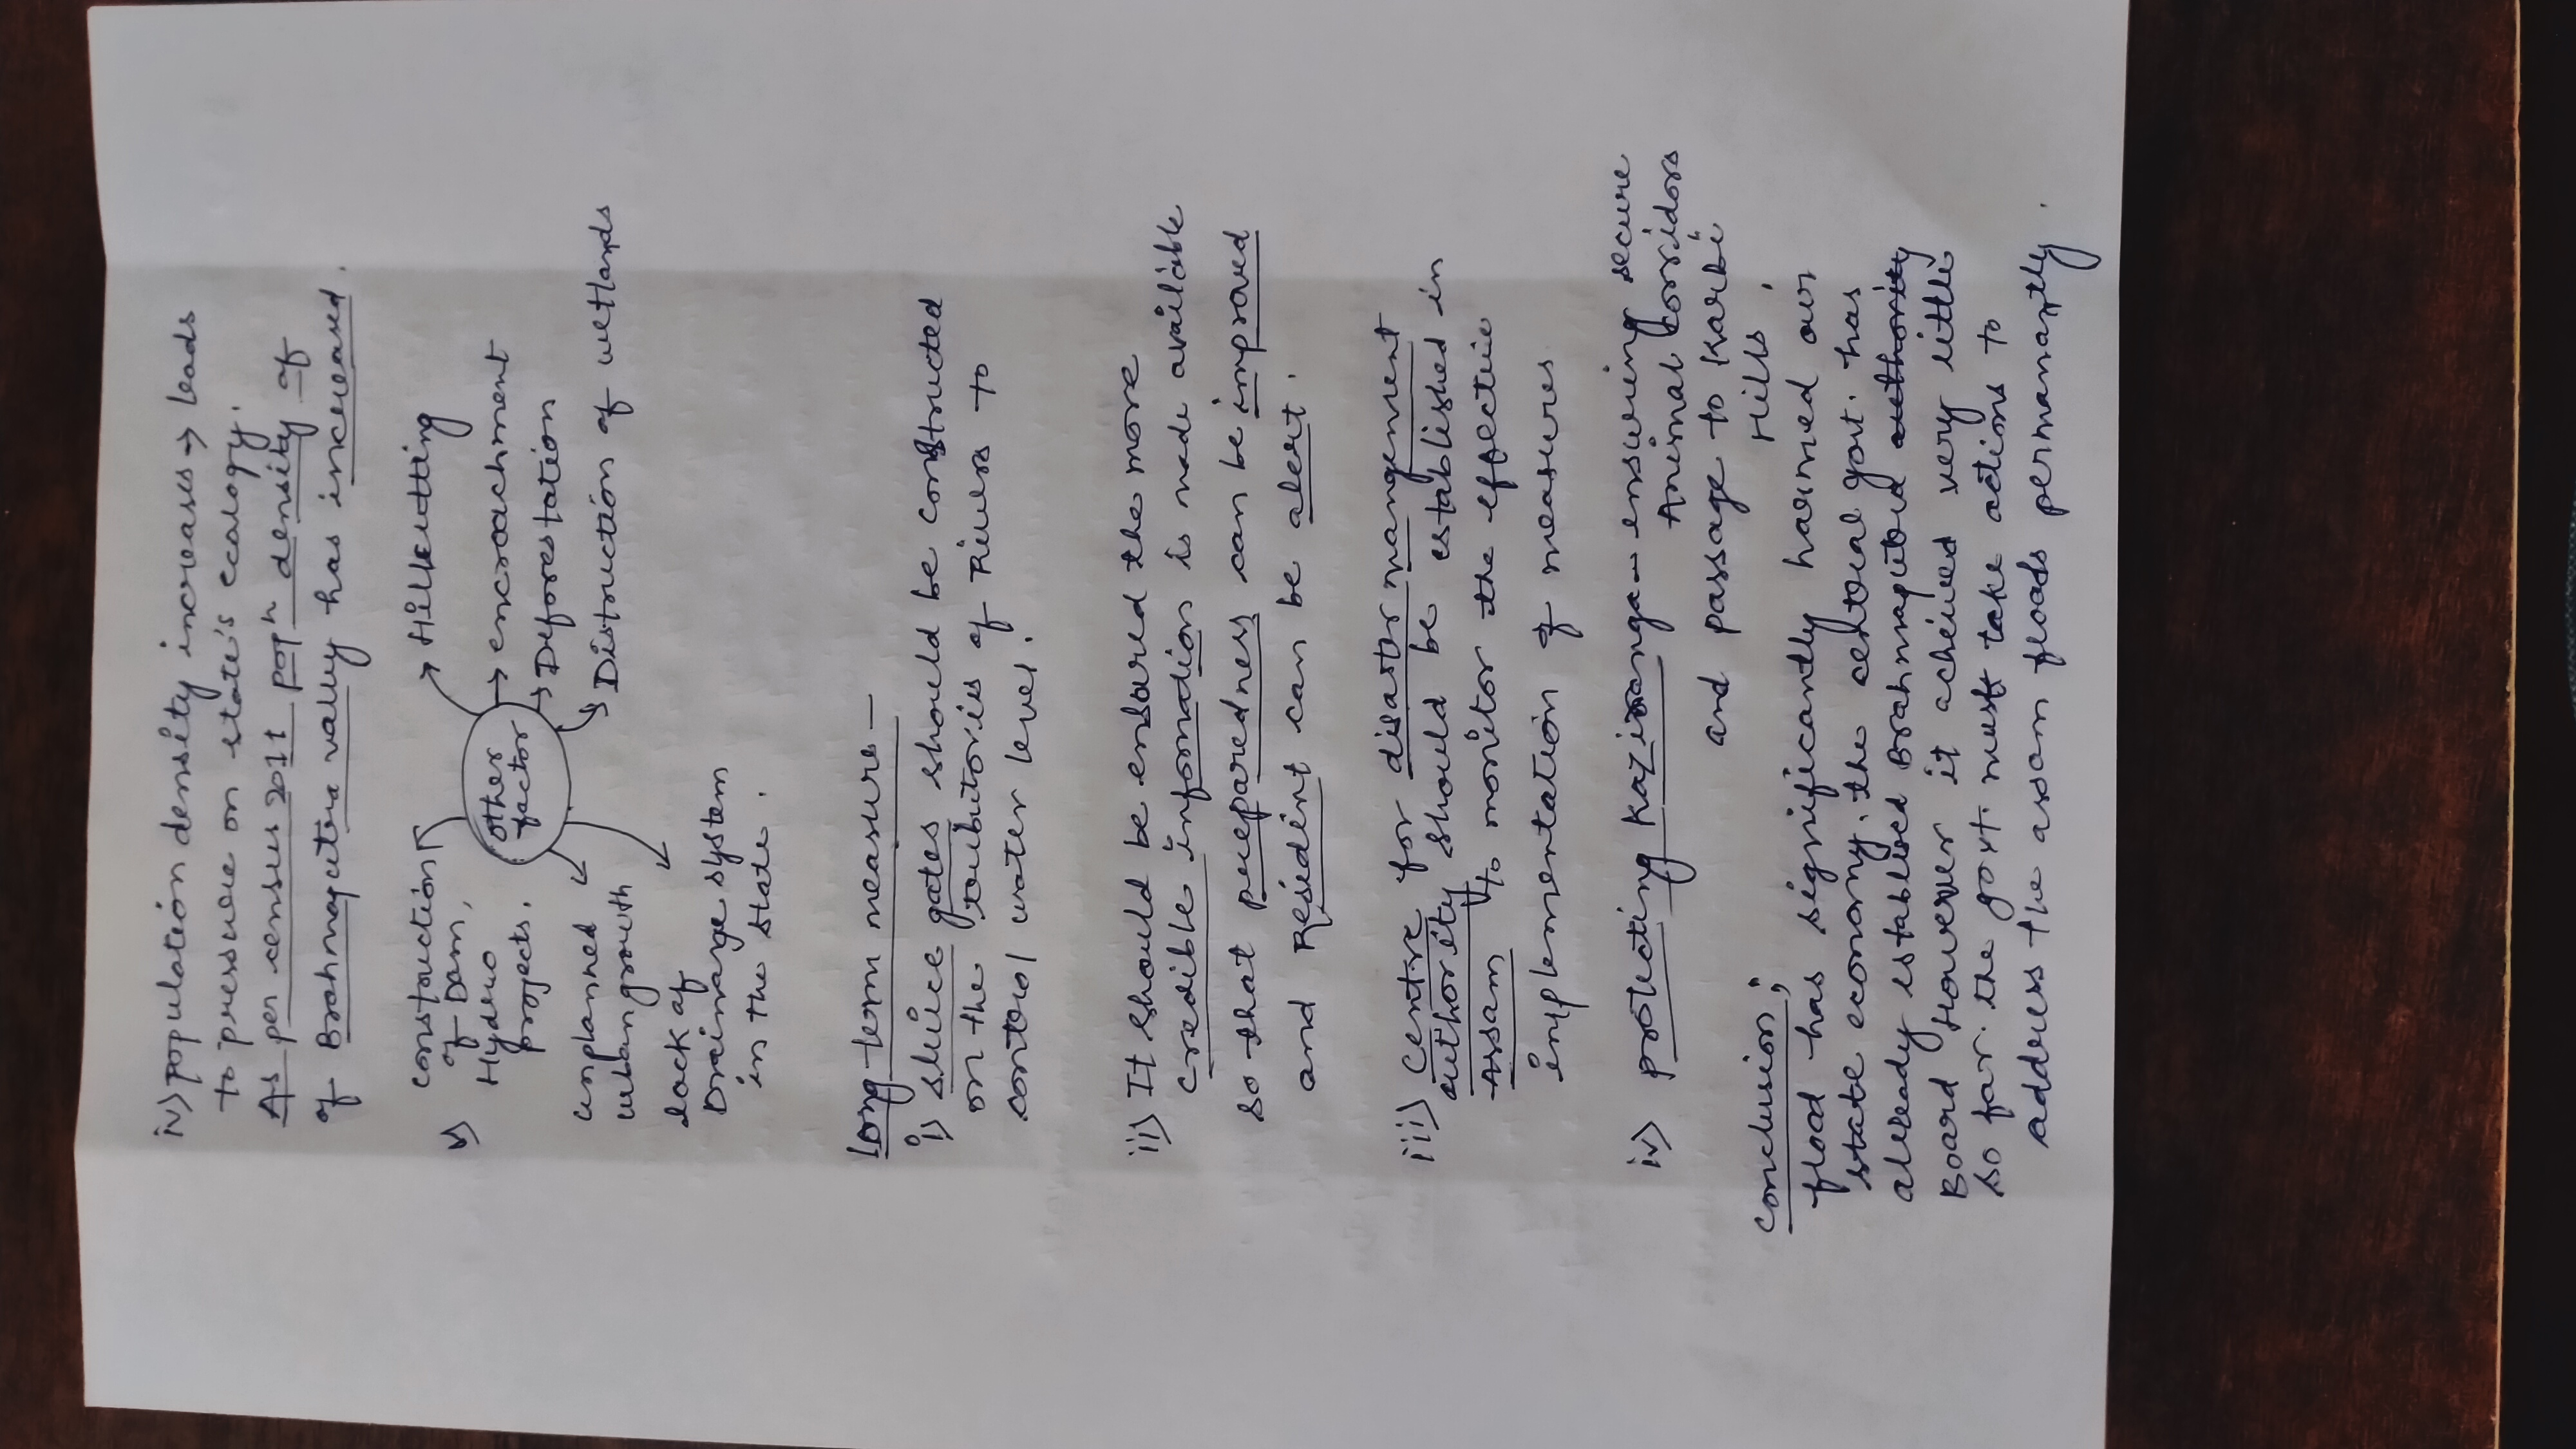 iv) population density increases → leads
to pressure on state's ecology.
As per census 2011 popn density of
of Brahmaputra vally has increased.
v) construction
of Dam,
Hydro
projects.
unplanned
urban growth
lack of
Drainange system
in the state.
other
factor
Hillcutting
encroachment
Deforestation
Distruction of wetlands
Long-term measure-
i) sluice gates should be constructed
on the tributories of Rivers to
control water level.
ii) It should be ensured the more
credible information is made available
so that preparedness can be improved
and Resident can be alert.
iii) Centre for disastor mangement
authority should be established in
Assam to monitor the effective
implementation of measures
iv) protecting Kaziranga - ensuring secure
Animal corridors
and passage to Karbi
Hills.
conclusion;
flood has significantly harmed our
state economy. the central govt. has
already established Brahmaputra authority
Board However it achieved very little
so far. the govt must take actions to
address the assam floods permanantly.